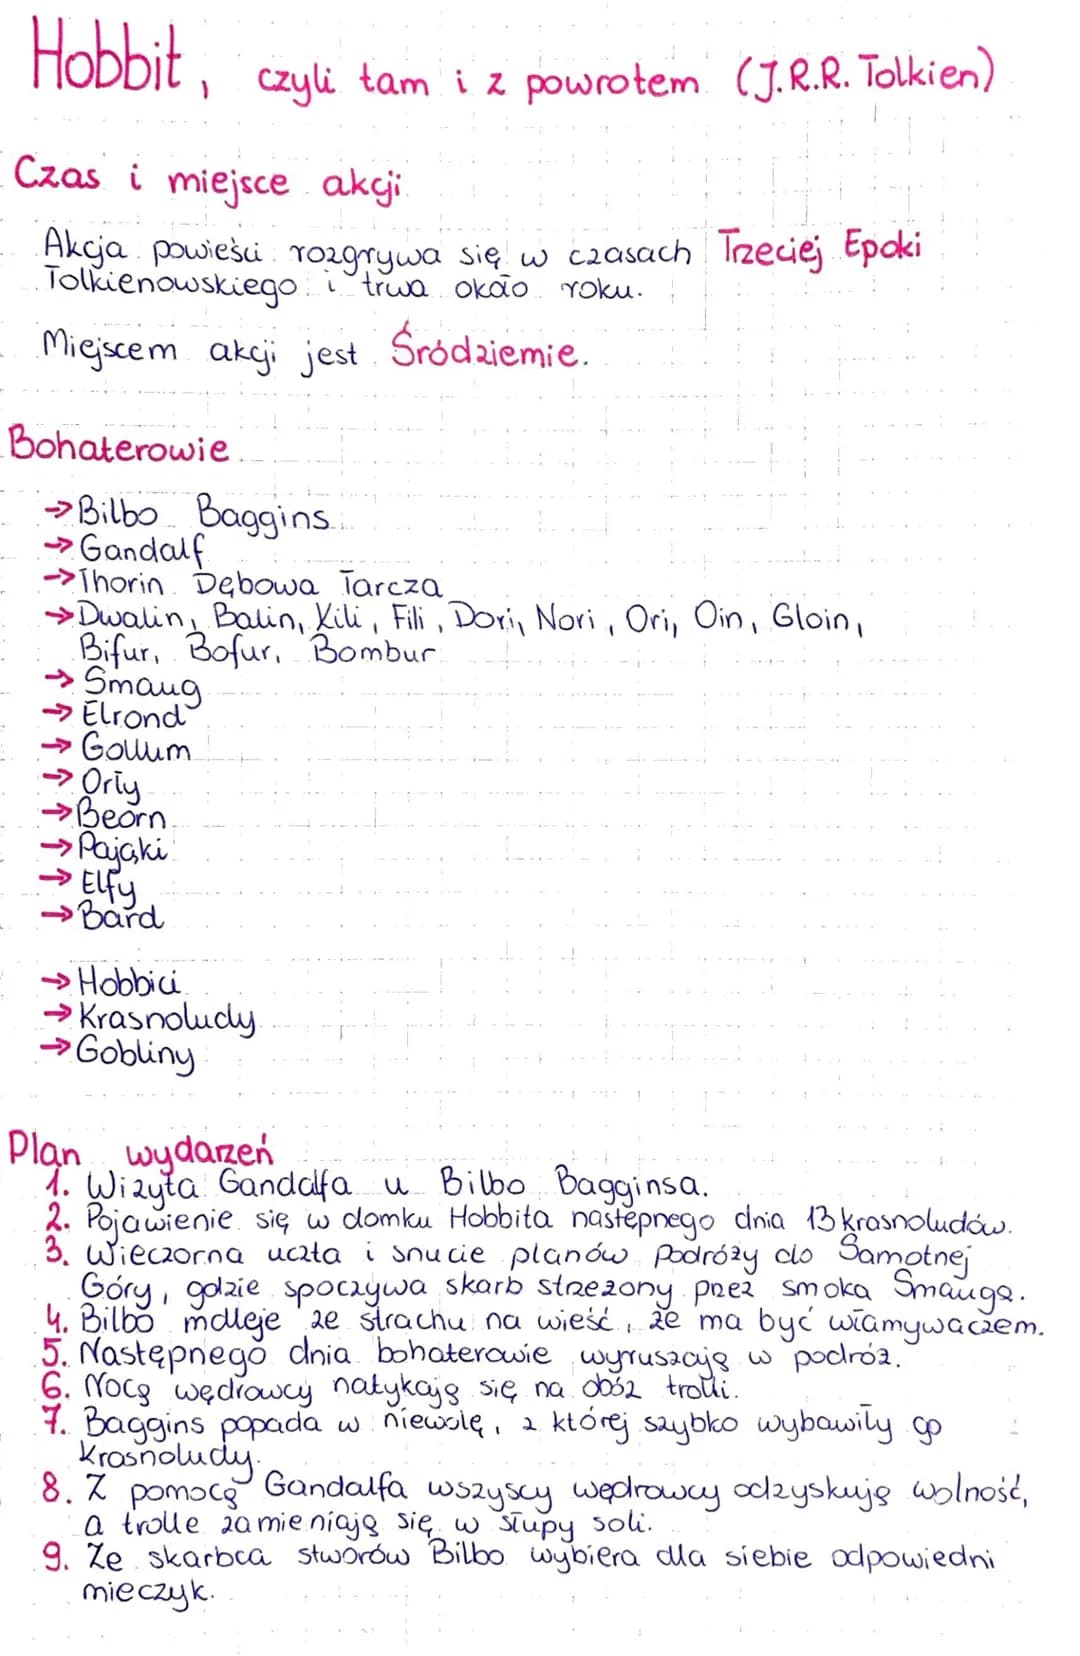 Hobbit, czyli tam i z powrotem (J.R.R. Tolkien)
Czas i miejsce akcji
Akcja powieści rozgrywa się w czasach Trzeciej Epoki
Tolkienowskiego i trwa około roku.
Miejscem akcji jest Śródziemie.
Bohaterowie
→ Bilbo Baggins
→ Gandalf
→ Thorin Dębowa Tarcza
→ Dwalin, Balin, Kili, Fili, Dori, Nori, Ori, Oin, Gloin,
Bifur, Bofur, Bombur
→ Smaug
→ Elrond
→ Gollum
→ Orły
→ Beorn
→ Pająki
→ Elfy
→ Bard
→ Hobbici
→ Krasnoludy
→ Gobliny
Plan wydarzeń
1. Wizyta Gandalfa u Bilbo Bagginsa.
2. Pojawienie się w domku Hobbita następnego dnia 13 krasnoludów.
3. Wieczorna uczta i snucie planów podróży do Samotnej
Góry, gdzie spoczywa skarb strzeżony przez smoka Smauga.
4. Bilbo mdleje ze strachu na wieść, że ma być włamywaczem.
5. Następnego dnia bohaterowie wyruszają w podróż.
6. Nocą wędrowcy natykają się na obóz trolli.
7. Baggins popada w niewolę, z której szybko wybawiły go
Krasnoludy.
8. Z pomocą Gandalfa wszyscy wędrowcy odzyskują wolność,
a trolle zamieniają się w słupy soli.
9. Ze skarbca stworów Bilbo wybiera dla siebie odpowiedni
mieczyk.